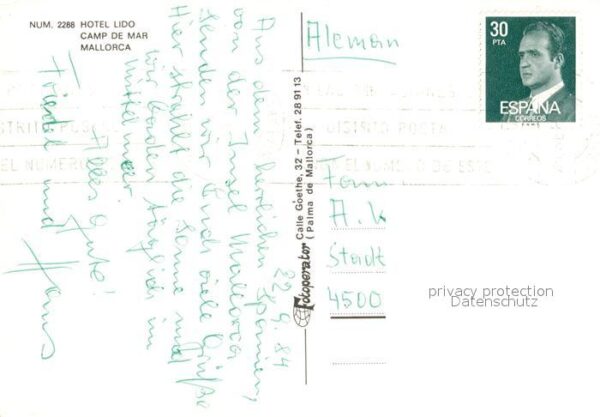 NUM. 2268 HOTEL LIDO
CAMP DE MAR
MALLORCA
22.9.84
Aus dem herrlichen Spanien,
von der Insel Mallorca
senden wir Euch viele Grüße
Hier strahlt die Sonne und
wir baden täglich im
Mittelmeer
Alles Gute!
Friedel und Hans
Fotoperator
Calle Goethe, 32 - Telef. 28 91 13
(Palma de Mallorca)
Aleman
30
PTA
ESPAÑA
CORREOS
DISTRITO POSTAL
EL NUMERO DE
Fam
A. K
Stadt
4500
privacy protection
Datenschutz